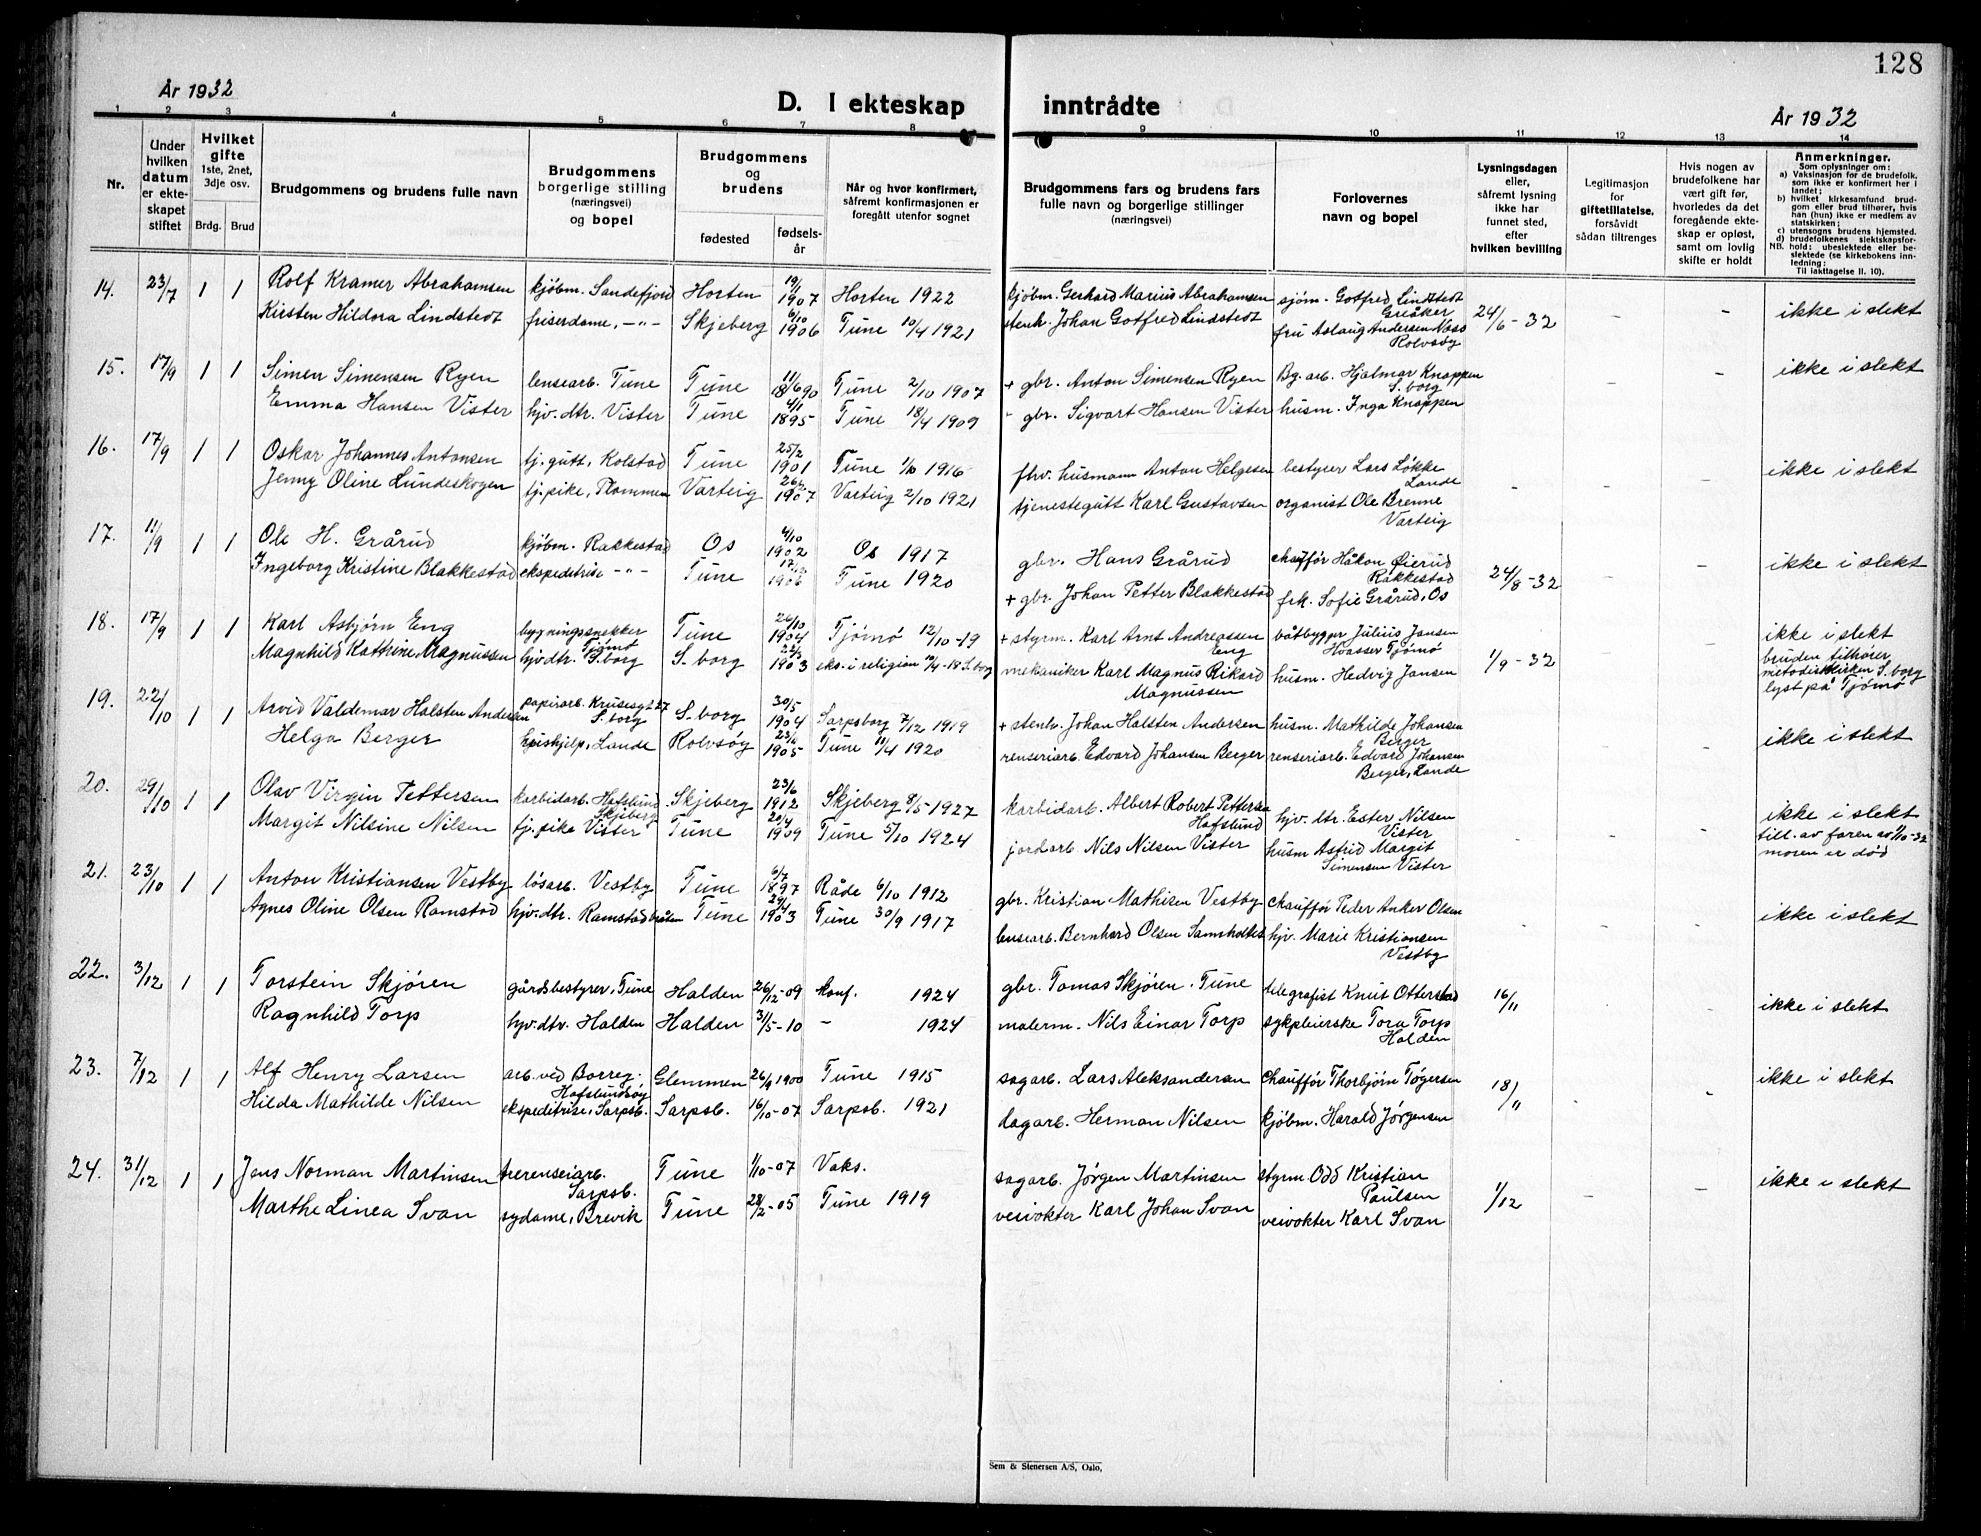 128
År 1932
D. I ekteskap inntrådte
År 1932
1 2 3 4 5 6 7 8 9 10 11 12 13 14
Nr.
Under hvilken datum er ekteskapet stiftet
Hvilket gifte 1ste, 2net, 3dje osv.
Brdg. Brud
Brudgommens og brudens fulle navn
Brudgommens borgerlige stilling (næringsvei) og bopel
Brudgommens og brudens
fødested
fødselsår
Når og hvor konfirmert, såfremt konfirmasjonen er foregått utenfor sognet
Brudgommens fars og brudens fars fulle navn og borgerlige stillinger (næringsvei)
Forlovernes navn og bopel
Lysningsdagen eller, såfremt lysning ikke har funnet sted, efter hvilken bevilling
Legitimasjon for giftetillatelse, forsåvidt sådan tiltrenges
Hvis nogen av brudefolkene har vært gift før, hvorledes da det foregående ekteskap er opløst, samt om lovlig skifte er holdt
Anmerkninger.
Som oplysninger om:
a) Vaksinasjon for de brudefolk. som ikke er konfirmert her i landet;
b) hvilket kirkesamfund brudgom eller brud tilhører, hvis han (hun) ikke er medlem av statskirken;
c) utensogns brudens hjemsted.
d) brudefolkenes slektskapsforhold: ubeslektede eller beslektede (se kirkebokens innledning:
NB.
Til iakttagelse II. 10).
14. 23/7 1 1 Rolf Kramer Abrahamsen kjøbm. Sandefjord Horten 19/1 1907 Horten 1922 kjøbm. Gerhard Marius Abrahamsen sjøm. Gotfred Lindstedt Greåker 24/6-32 - - ikke i slekt
Kirsten Hildora Lindstedt friserdame, -"- Skjeberg 6/10 1906 Tune 10/4 1921 stenh. Johan Gotfred Lindstedt fru Aslaug Andersen Næss Rolvsøy
15. 17/9 1 1 Simen Simensen Ryen lensearb. Tune Tune 11/6 1890 Tune 2/10 1907 + gbr. Anton Simensen Ryen Bg. arb. Hjalmar Knappen S.borg - - ikke i slekt
Emma Hansen Vister hjv. dtr. Vister Tune 4/11 1895 Tune 18/4 1909 gbr. Sigvart Hansen Vister husm. Inga Knappen
16. 17/9 1 1 Oskar Johannes Antonsen tj. gutt, Kolstad Tune 25/2 1901 Tune 1/10 1916 fhv. husmann Anton Helgesen bestyrer Lars Løkke Lande - - - ikke i slekt
Jenny Oline Lundeskogen tj. pike, Plommen Varteig 1907 Varteig 2/10 1921 tjenestegutt Karl Gustavsen organist Ole Brenne Varteig
17. 11/9 1 1 Ole H. Grårud kjøbm. Rakkestad Os 4/10 1902 Os 1917 gbr. Hans Grårud chauffør Håkon Øierud Rakkestad 24/8-32 - - ikke i slekt
Ingeborg Kristine Blakkestad ekspeditrise -"- Tune 1906 Tune 1920 + gbr. Johan Petter Blakkestad frk. Sofie Grårud, Os
18. 17/9 1 1 Karl Asbjørn Eng bygningssnekker Tjømø Tune 26/10 1904 Tjømø 12/10-19 + styrm. Karl Arnt Andreassen Eng båtbygger Julius Jansen Hvasser Tjømø 1/9-32 ikke i slekt
Magnhild Kathrine Magnussen hjv. dtr. S.borg S.borg 1903 eks. i religion 10/4-18 S.borg mekaniker Karl Magnus Rikard Magnussen husm. Hedvig Jansen bruden tilhører metodistkirken S.borg lyst på Tjømø
19. 22/10 1 1 Arvid Valdemar Halsten Andersen papirarb. Krusesgt 27 S.borg S.borg 30/5 1904 Sarpsborg 7/12 1919 + stenh. Johan Halsten Andersen husm. Mathilde Johansen Berger - - - ikke i slekt
Helga Berger hushjelp, Lande Rolvsøy 1905 Tune 11/4 1920 renseriarb. Edvard Johansen Berger renseriarb. Edvard Johansen Berger, Lande
20. 29/10 1 1 Olav Virgin Pettersen karbidarb. Hafslund Skjeberg Skjeberg 23/6 1912 Skjeberg 8/5 1927 karbidarb. Albert Robert Pettersen Hafslund hjv. dtr. Ester Nilsen Vister - - - ikke i slekt
Margit Nilsine Nilsen tj. pike Vister Tune 20/4 1909 Tune 5/10 1924 jordarb. Nils Nilsen Vister husm Astrid Margit Simensen Vister till. av faren av 1/10-32 moren er død
21. 23/10 1 1 Anton Kristiansen Vestby løsarb. Vestby Tune 6/7 1897 Råde 6/10 1912 gbr. Kristian Mathisen Vestby chauffør Peder Anker Olsen - - - ikke i slekt
Agnes Oline Olsen Ramstad hjv. dtr. Ramstadbråten Tune 1903 Tune 30/9 1917 lensearb. Bernhard Olsen hjv. Marie Kristiansen Vestby
22. 3/12 1 1 Torstein Skjøren gårdsbestyrer, Tune Halden 26/12-09 konf. 1924 gbr. Tomas Skjøren. Tune telegrafist Knut Otterstad 16/11 - - ikke i slekt
Ragnhild Torp hjv. dtr. Halden Halden 31/5-10 - 1924 malerm. Nils Einar Torp sykepleierske Tora Torp Halden
23. 7/12 1 1 Alf Henry Larsen arb. ved Borreg. Hafslundsøy Glemmen 26/9 1900 Tune 1915 sagarb. Lars Aleksandersen Chauffør Thorbjørn Tøgersen 18/11 - - ikke i slekt
Hilda Mathilde Nilsen ekspeditrise, Sarpsb. Sarpsb. 16/10-07 Sarpsb. 1921 dagarb. Herman Nilsen kjøbm. Harald Jørgensen
24. 31/12 1 1 Jens Norman Martinsen trerenseriarb. Sarpsb. Tune 1/10-07 Vaks. sagarb. Jørgen Martinsen styrm Odd Kristian Paulsen 1/12 - - ikke i slekt
Marthe Linea Svan sydame, Brevik Tune 28/2-05 Tune 1919 veivokter Karl Johan Svan veivokter Karl Svan
Sem & Stenersen A/S, Oslo.